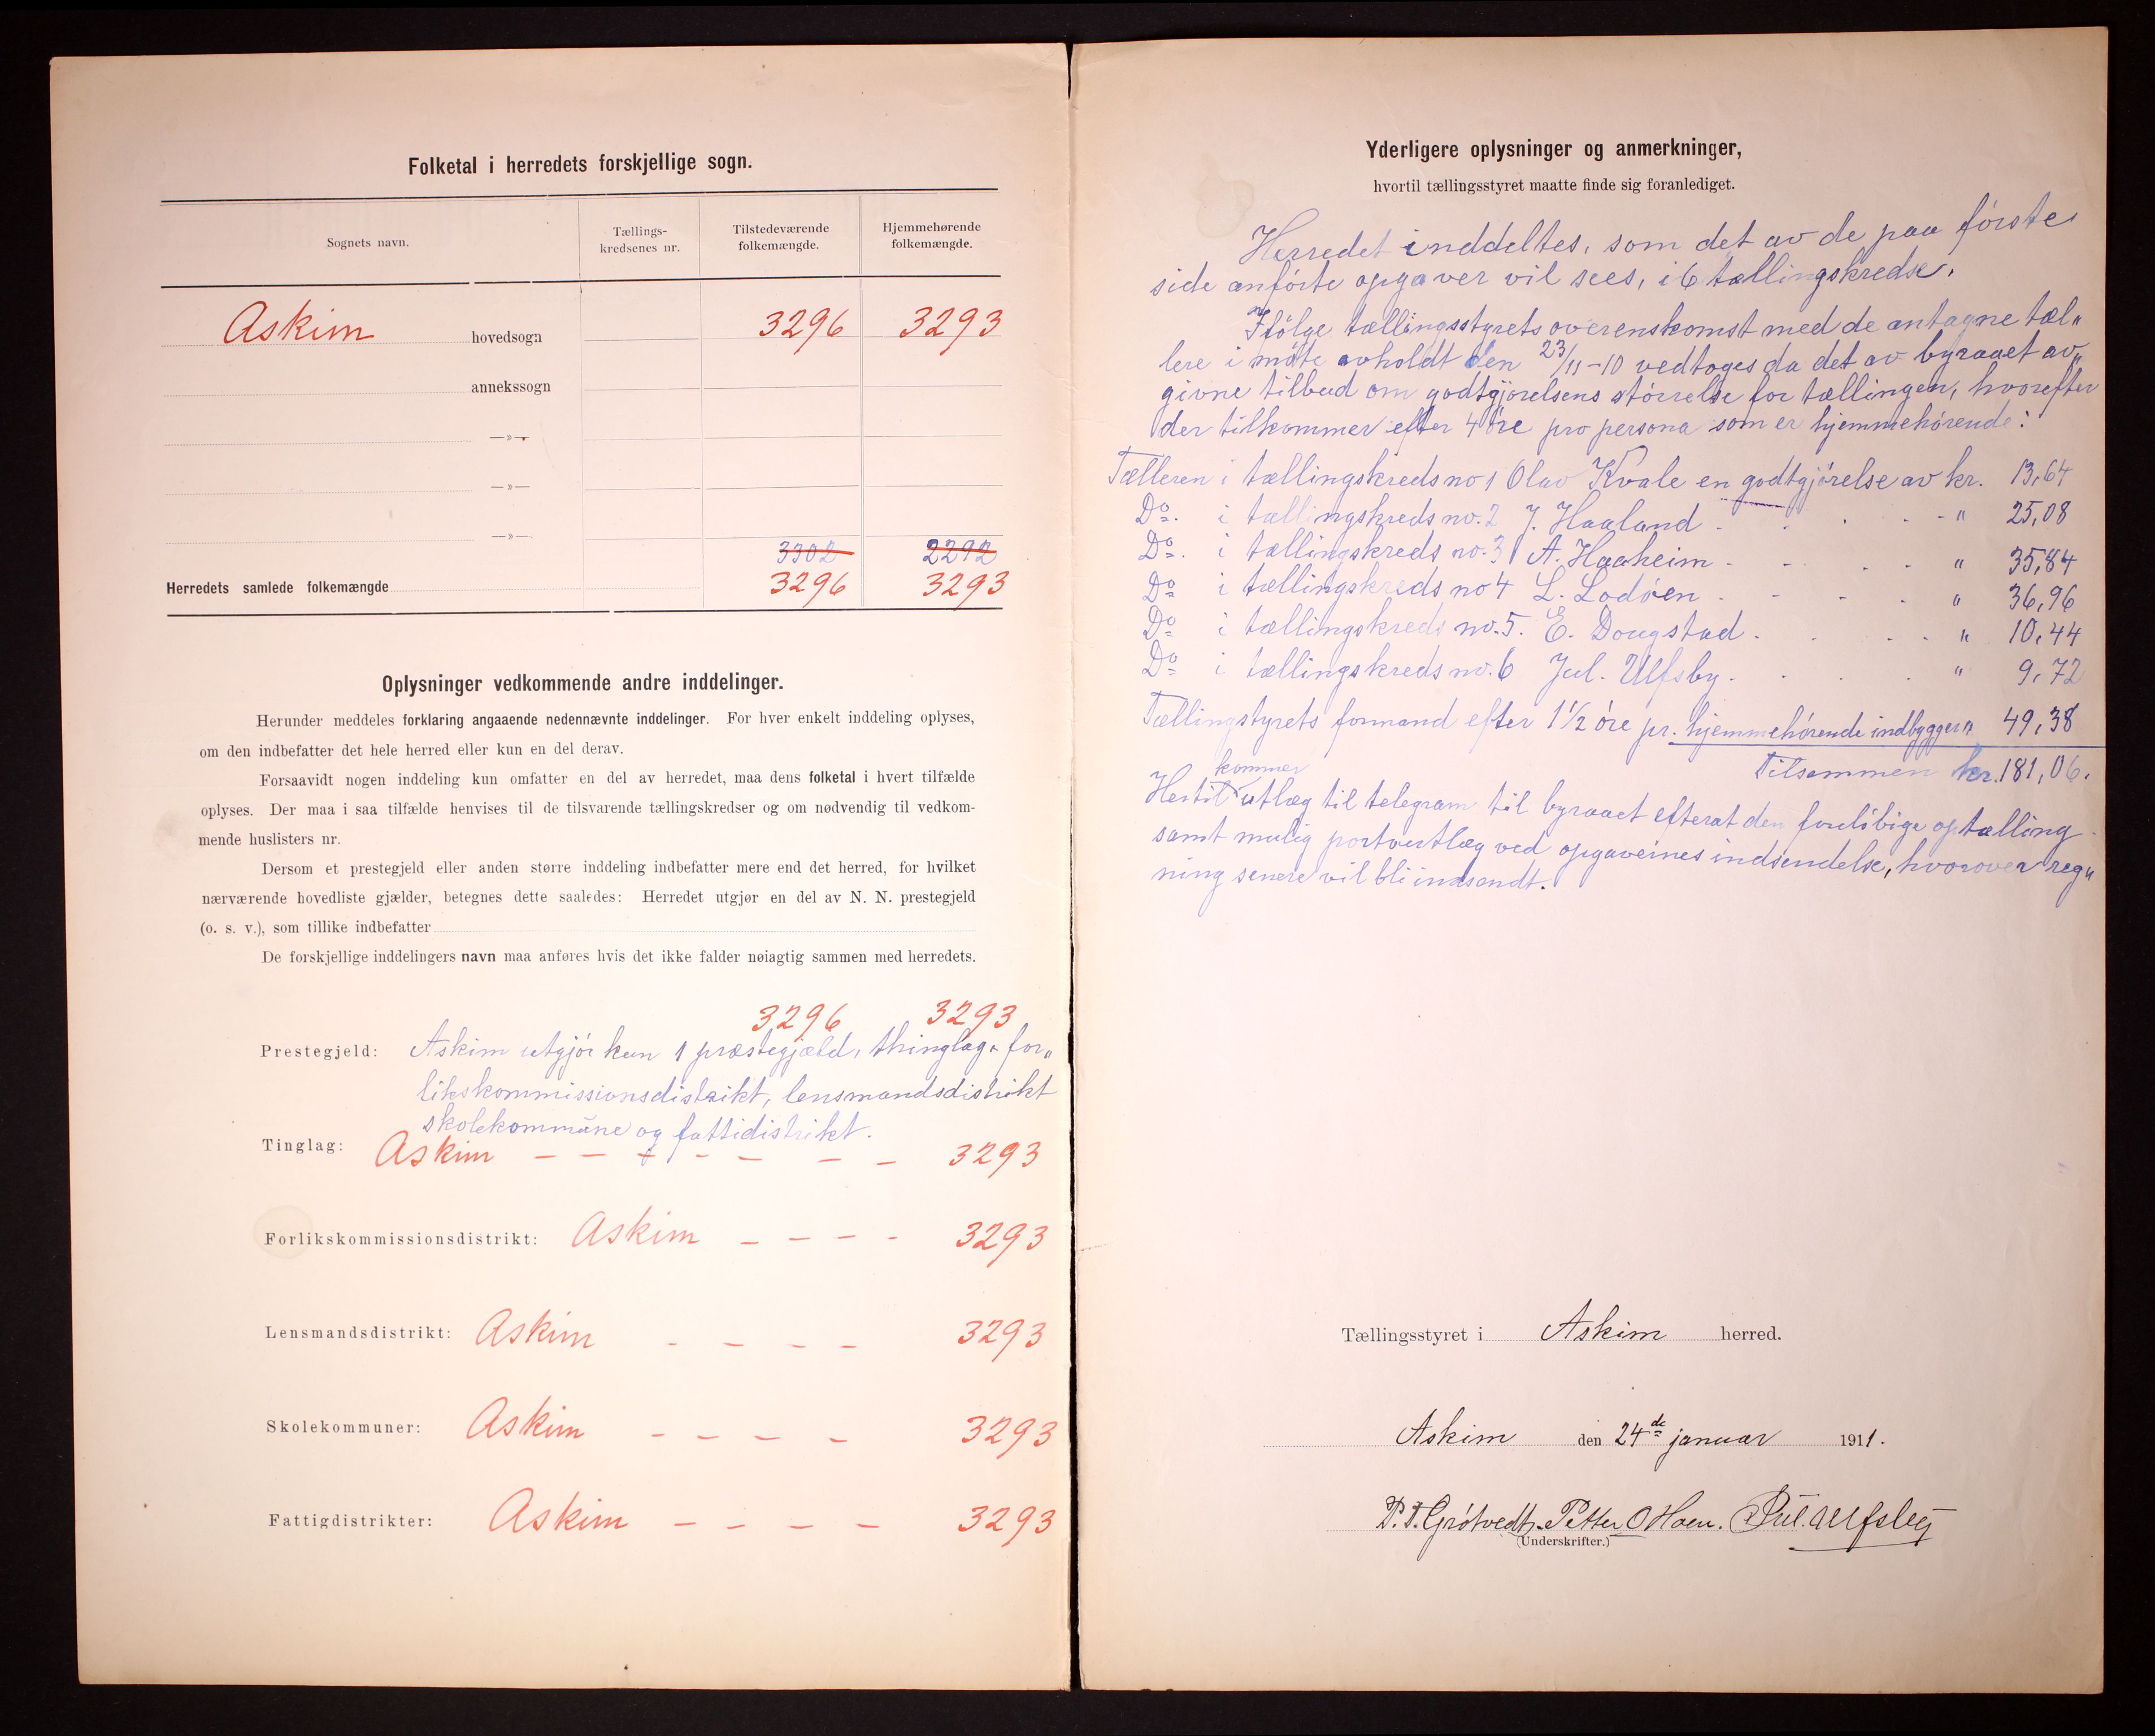 Folketal i herredets forskjellige sogn.
Sognets navn. Tællings-kredsenes nr. Tilstedeværende folkemængde. Hjemmehørende folkemængde.
Askim hovedsogn 3296 3293
annekssogn
—»—
—»—
—»—
3302 2292
Herredets samlede folkemængde 3296 3293
Oplysninger vedkommende andre inddelinger.
Herunder meddeles forklaring angaaende nedennævnte inddelinger. For hver enkelt inddeling oplyses,
om den indbefatter det hele herred eller kun en del derav.
Forsaavidt nogen inddeling kun omfatter en del av herredet, maa dens folketal i hvert tilfælde
oplyses. Der maa i saa tilfælde henvises til de tilsvarende tællingskredser og om nødvendig til vedkom-
mende huslisters nr.
Dersom et prestegjeld eller anden større inddeling indbefatter mere end det herred, for hvilket
nærværende hovedliste gjælder, betegnes dette saaledes: Herredet utgjør en del av N. N. prestegjeld
(o. s. v.), som tillike indbefatter
De forskjellige inddelingers navn maa anføres hvis det ikke falder nøiagtig sammen med herredets.
3296 3293
Prestegjeld: Askim utgjör kun 1 præstegjæld, thinglag, for„
likskommissionsdistrikt, lensmandsdistrikt
skolekommune og fattidistrikt.
Tinglag: Askim — — — — — — — 3293
Forlikskommissionsdistrikt: Askim — — — — 3293
Lensmandsdistrikt: Askim — — — — 3293
Skolekommuner: Askim — — — — 3293
Fattigdistrikter: Askim — — — — 3293
Yderligere oplysninger og anmerkninger,
hvortil tællingsstyret maatte finde sig foranlediget.
Herredet inddeltes, som det av de paa förste
side anförte opgaver vil sees, i 6 tællingskredse.
Ifölge tællingsstyrets overenskomst med de antagne tæl„
lere i möte avholdt den 23/11-10 vedtoges da det av byraaet av„
givne tilbud om godtgjörelsens störrelse for tællingen, hvorefter
der tilkommer efter 4 öre pro persona som er hjemmehörende:
Tælleren i tællingskreds no 1 Olav Kvale en godtgjörelse av kr. 13,64
Do. i tællingskreds no. 2 J. Haaland - - - - " 25,08
Do. i tællingskreds no. 3 A. Haaheim - - - - " 35,84
Do i tællingskreds no 4 L. Lodöen - - - - " 36,96
Do i tællingskreds no. 5. E. Dougstad - - - - " 10,44
Do i tællingskreds no. 6 Jul. Ulfsby - - - - " 9,72
Tællingstyrets formand efter 1 1/2 öre pr. hjemmehörende indbygger " 49,38
Tilsammen kr. 181,06.
Hertil kommer utlæg til telegram til byraaet efterat den forelöbige optælling
samt mulig portoutlæg ved opgavernes indsendelse, hvorover reg„
ning senere vil bli indsendt.
Tællingsstyret i Askim herred.
Askim den 24de januar 1911.
P. J. Grötvedt. Petter O Hoen. Jul. Ulfsby
(Underskrifter.)